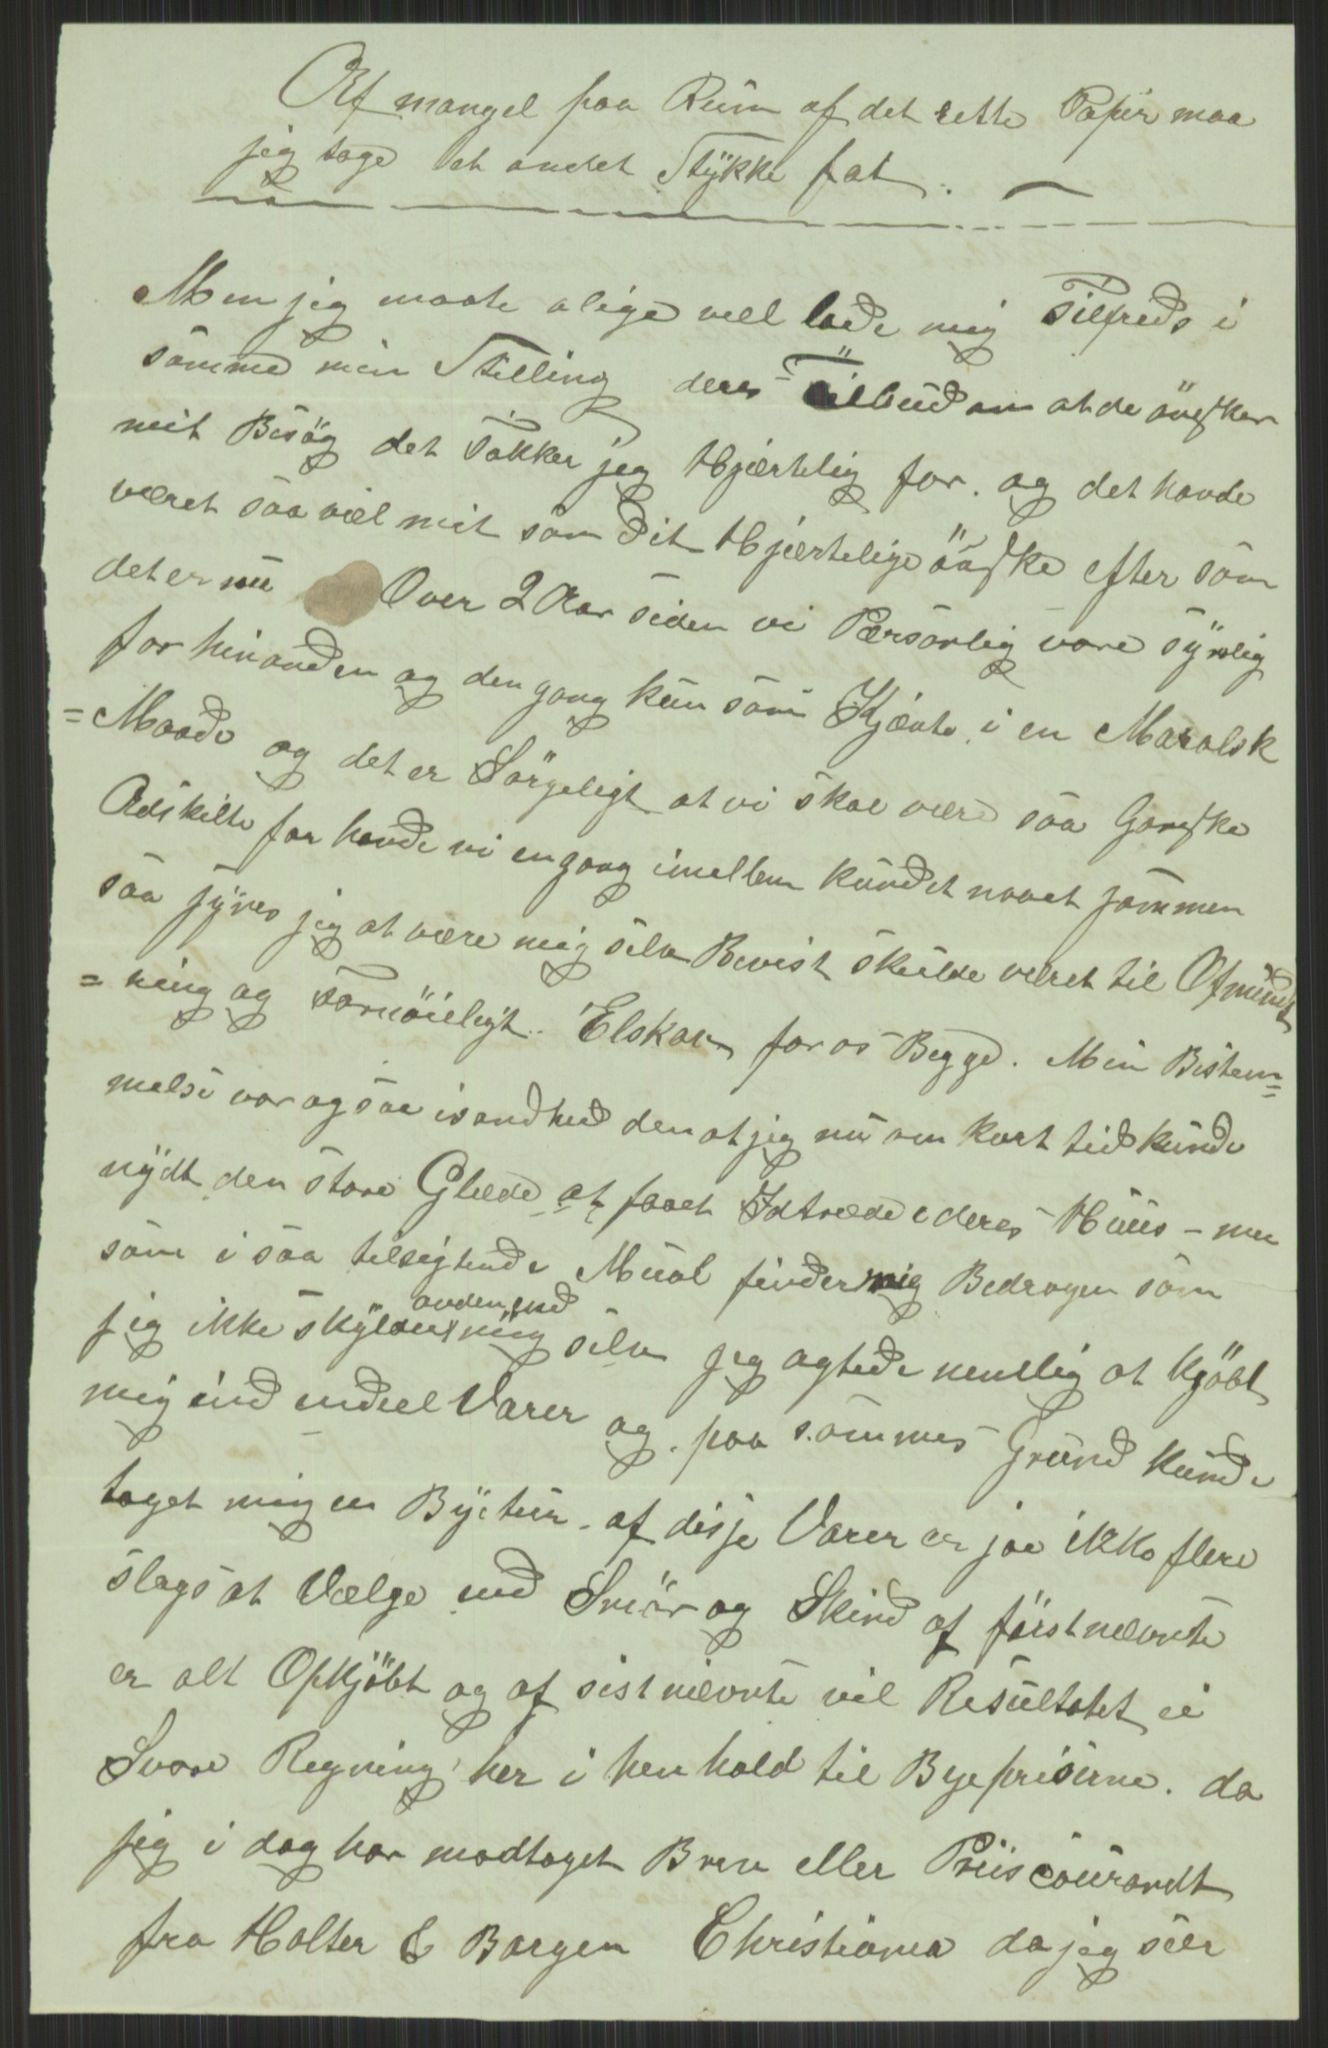 Af mangel paa Rum af det rette Papir maa
jeg tage et andet Stykke fat. —
Men jeg maate alige vell lade mig Tilfreds i
samme min Stilling deres Tilbud om at de önsker
mit Besög det Takker jeg Hjærtelig for. og det havde
været saa vel mit som dit Hjertelige önske efter som
det er nu Over 2 Aar siden vi Pærsonlig vare synlig
for hinanden og den gang kun som Kjænte i en Maralsk
= Maade og det er Sörgeligt at vi skal være saa Ganske
Adskilte for havde vi en gang imellem kundet naaet sammen
saa synes jeg at være mig selv Bevist skulde været til Opmund
= ning og Fornöieligt. Elskov for os Begge. Min Bestem=
melse var og saa i sandhed den at jeg nu om kort tid kunde
nydt den store Glæde at faaet Idtræde i deres Huus - men
som i saa tilsigtende Maal finder mig Bedragen som
jeg ikke skylder anden end mig selv jeg agtede nemlig at kjöbt
mig ind endeel Varer og paa sammes Grund kunde
taget mig en Byetur. af disse Varer er jae ikke flere
slags at Vælge end Smör og Skind af förstnævnte
er alt Opkjöbt og af sistnævnte vil Resultatet ei
Svare Regning her i hen hold til Byepriserne. da
jeg i dag har modtaget Brev eller Priiscourandt
fra Holter & Borgen Christiania da jeg seer